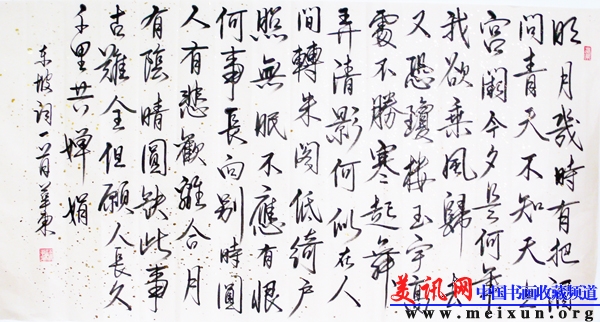 明月幾時有把酒
問青天不知天上
宮闕今夕是何年
我欲乘風歸去
又恐瓊樓玉宇高
處不勝寒起舞
弄清影何似在人
間轉朱閣低綺戶
照無眠不應有恨
何事長向別時圓
人有悲歡離合月
有陰晴圓缺此事
古難全但願人長久
千里共嬋娟
东坡詞一首
美讯网 中国书画收藏频道
www.meixun.org